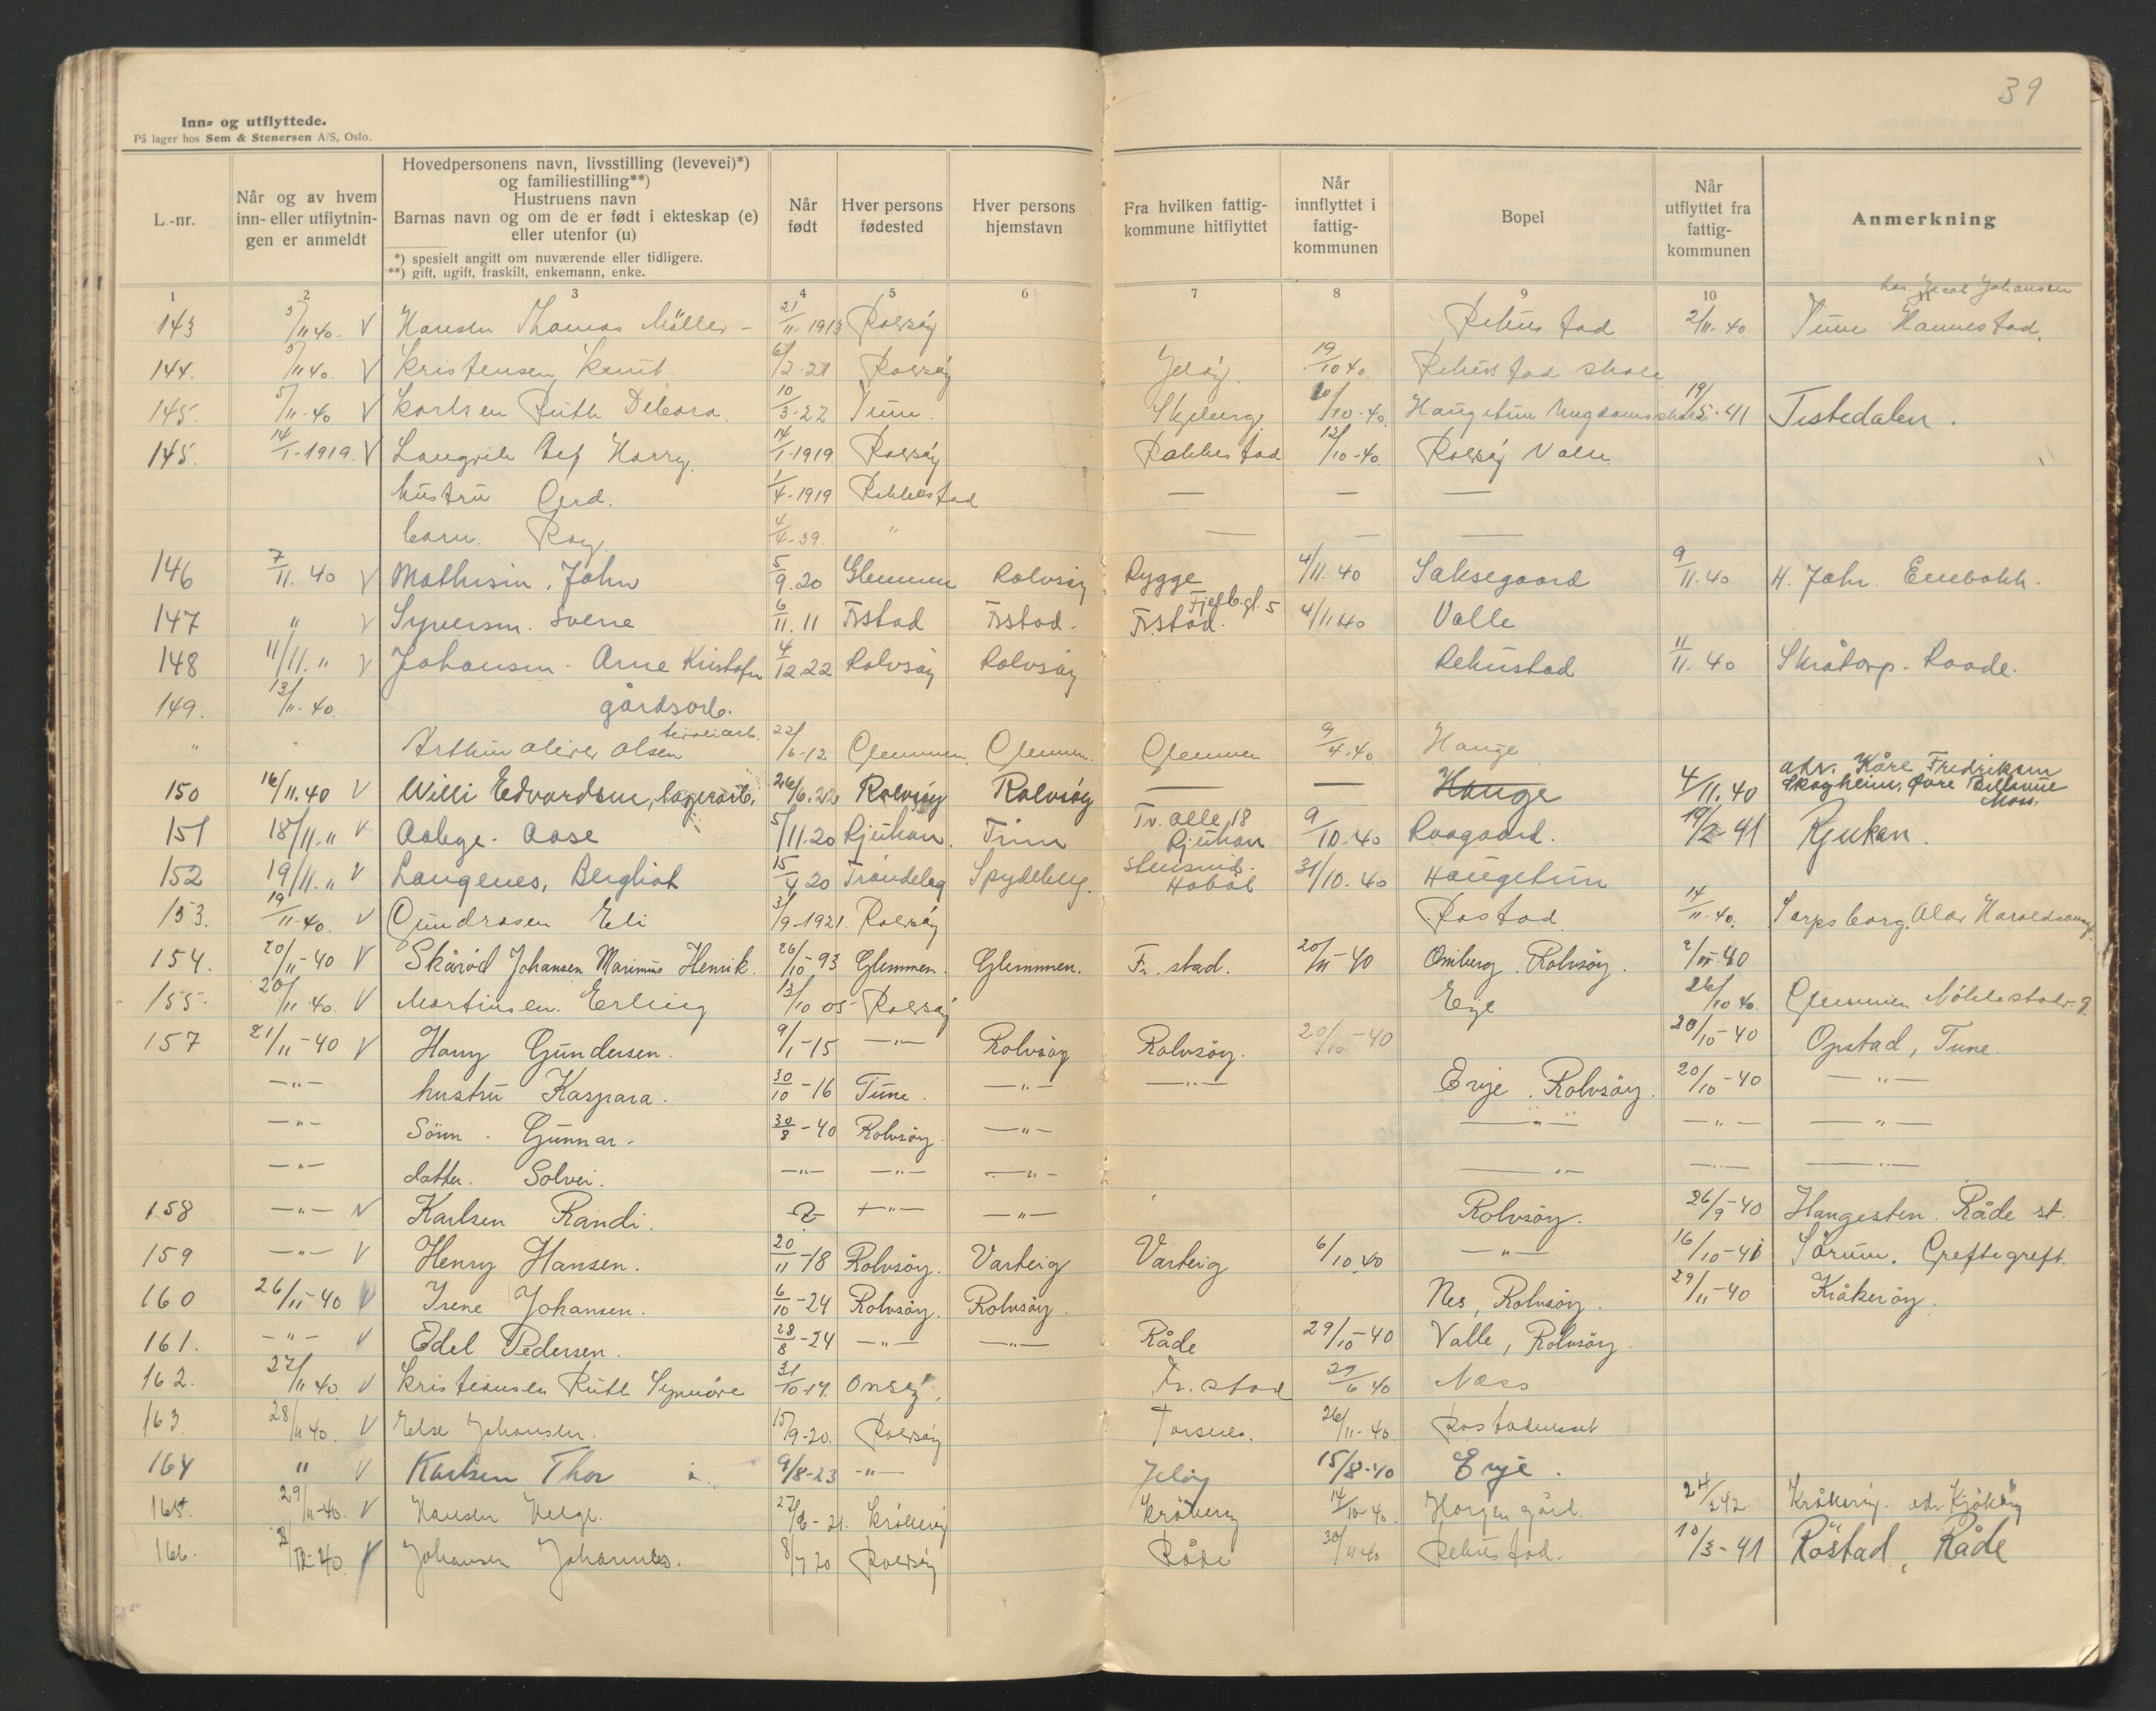 39
Inn- og utflyttede.
På lager hos Sem & Stenersen A/S, Oslo.
L.-nr.
Når og av hvem
inn- eller utflytnin-
gen er anmeldt
Hovedpersonens navn, livsstilling (levevei)*)
og familiestilling**)
Hustruens navn
Barnas navn og om de er født i ekteskap (e)
eller utenfor (u)
*) spesielt angitt om nuværende eller tidligere.
**) gift, ugift, fraskilt, enkemann, enke.
Når
født
Hver persons
fødested
Hver persons
hjemstavn
Fra hvilken fattig-
kommune hitflyttet
Når
innflyttet i
fattig-
kommunen
Bopel
Når
utflyttet fra
fattig-
kommunen
Anmerkning
1 2 3 4 5 6 7 8 9 10
hos Jacob Johansen
143 5/11 40. V Hansen Thomas Möller - 21/11-1913 Rolvsøy Rekustad 2/11.40 Tune Hannestad.
144. 5/11 40. V Kristensen Knut 6/2-21 Rolvsøy Jeløy. 19/10 40. Rekustad skole
145. 5/11-40 V Karlsen Ruth Debora 10/3-22 Tune. Skjeberg. 10/10-40. Haugetun Ungdomsskole 19/5-41 Tistedalen.
145. 14/1-1919. V Langvik Alf Harry. 14/1-1919. Rolvsøy Rakkestad 12/10-40. Rolvsøy Valle
hustru Gerd. 1/4-1919 Rakkestad — — —
barn. Roy 4/4-39. " — — —
146 7/11.40 V Mathisen, John 5/9.20 Glemmen Rolvsøy Rygge 4/11.40 Saksegaard 9/11.40 H. Jahr. Enebakk.
Fjelb.gt. 5
147 " V Syversen. Sverre 6/11.11 Fr.stad Fr.stad. Fr.stad. 4/11.40 Valle
148 11/11. " V Johansen - Arne Kristofer 4/12.22 Rolvsøy Rolvsøy Rekustad 11/11.40 Skråtorp - Raade.
149. 13/11-40. gårdsarb.
" Arthur Oliver Olsen 22/6-12 Glemmen. Glemmen. Glemmen 9/4.40. Hauge
adr. Kåre Fredriksen
150 16/11.40 V Willi Edvardsen, lagerarb. 26/6.22 Rolvsøy Rolvsøy — Hauge 4/11.40 Skogheim, Øvre Bellevue
Moss.
Tv. alle 18
151 18/11. " V Aabge - Aase 5/11.20 Rjukan. Tinn Rjukan 9/10.40 Raagaard. 19/2-41 Rjukan.
152 19/11. " V Langenes, Bergliot 15/4 20 Trøndelag Spydeberg. Hobøl 31/10.40 Haugetun
153. 19/11-40. V Gundrosen Eli 3/9-1921. Rolvsøy Rostad 14/11-40. Sarpsborg. Olav Haraldsons gt.
154. 20/11-40 V Skåröd Johansen Marinius Henrik. 26/10-93 Glemmen. Glemmen. Fr. stad. 20/11-40 Omberg. Rolvsöy. 2/11-40
155. 20/11 40. V Martinsen. Erling 13/10 05 Rolvsøy Evje 26/10 40. Glemmen Möklestadv. 9
157 21/11-40 V Harry Gundersen. 9/1-15 —"— Rolvsöy Rolvsöy. 20/10-40 20/10-40 Opstad, Tune.
—"— hustru Kaspara. 30/10-16 Tune. —"— —"— Evje. Rolvsöy. 20/10-40 —"—
—"— Sönn. Gunnar. 30/8-40 Rolvsöy. —"— —"— —"— —"—
—"— datter. Solvei. —"— —"— —"— —"— —"— —"—
158 —"— V Karlsen Randi. ? —"— —"— Rolvsöy. 26/9-40 Haugesten. Råde st.
159 —"— V Henry Hansen. 20/11-18 Rolvsöy. Varteig Varteig 6/10 40 —"— 16/10-40 Sörum. Greftegreft.
160 26/11-40 V Irene Johansen. 6/10-24 Rolvsöy. Rolvsöy. Nes, Rolvsöy. 29/11-40 Kråkeröy.
161. —"— V Edel Pedersen. 28/8-24 —"— —"— Råde 29/10-40 Valle, Rolvsöy
162. 27/11 40. V Kristiansen Ruth Synnöve 31/10-17. Onsøy. Fr. stad 29/6 40 Næss
163. 28/11 40. V Else Johansen. 15/9-20. Rolvsøy Torsnes. 26/11-40. Rostadneset
164 " V Karlsen Thor 9/8-23 —"— Jeløy 15/8-40 Evje.
165. 29/11-40. V Hansen Helge. 27/6-21. Kråkerøy Kråkerøy 14/10-40. Horgen gård. 24/2 42 Kråkerøy. adr. Kjøkøy
166. 2/12-40. V Johansen Johannes. 8/7 20 Rolvsøy Råde 30/11 40 Rekustad. 10/3-41 Röstad, Råde